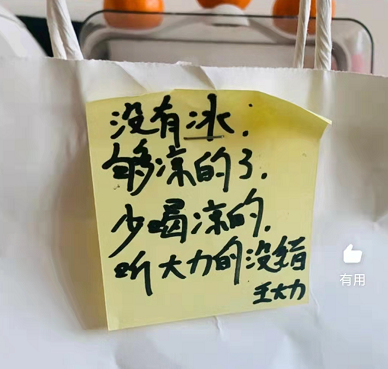 没有冰.
够凉的了.
少喝凉的.
听大力的没错
王大力
有用